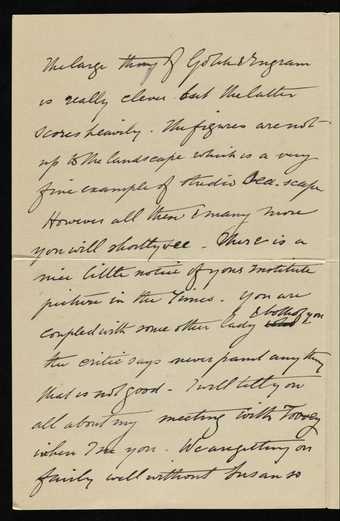 The large thing of Gotch & Ingram
is really clever but the latter
scores heavily. The figures are not
up to the landscape which is a very
fine example of studio Sea-scape
However all these & many more
you will shortly see. There is a
nice little notice of your Institute
picture in the Times. You are
coupled with some other lady & both of you
the critic says never paint anything
that is not good - I will tell you
all about my meeting with
when I see you. We are getting on
fairly well without Susan so